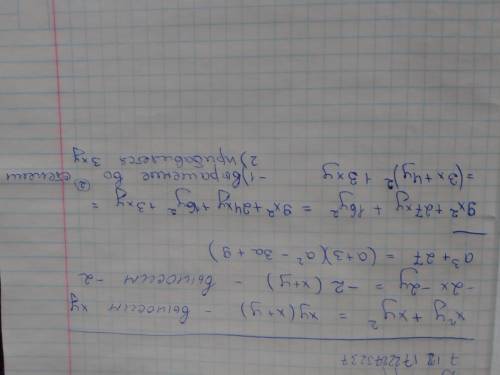 x²y + xy² = xy(x+y) - выносим xy
-2x-2y = -2 (x+y) - выносим -2
a³+27 = (a+3)(a²-3a+9)
9x²+27xy + 16y² = 9x²+24xy+16y²+3xy =
=(3x+4y)²+3xy - 1) выражение во ② степени
2) прибавляется 3xy